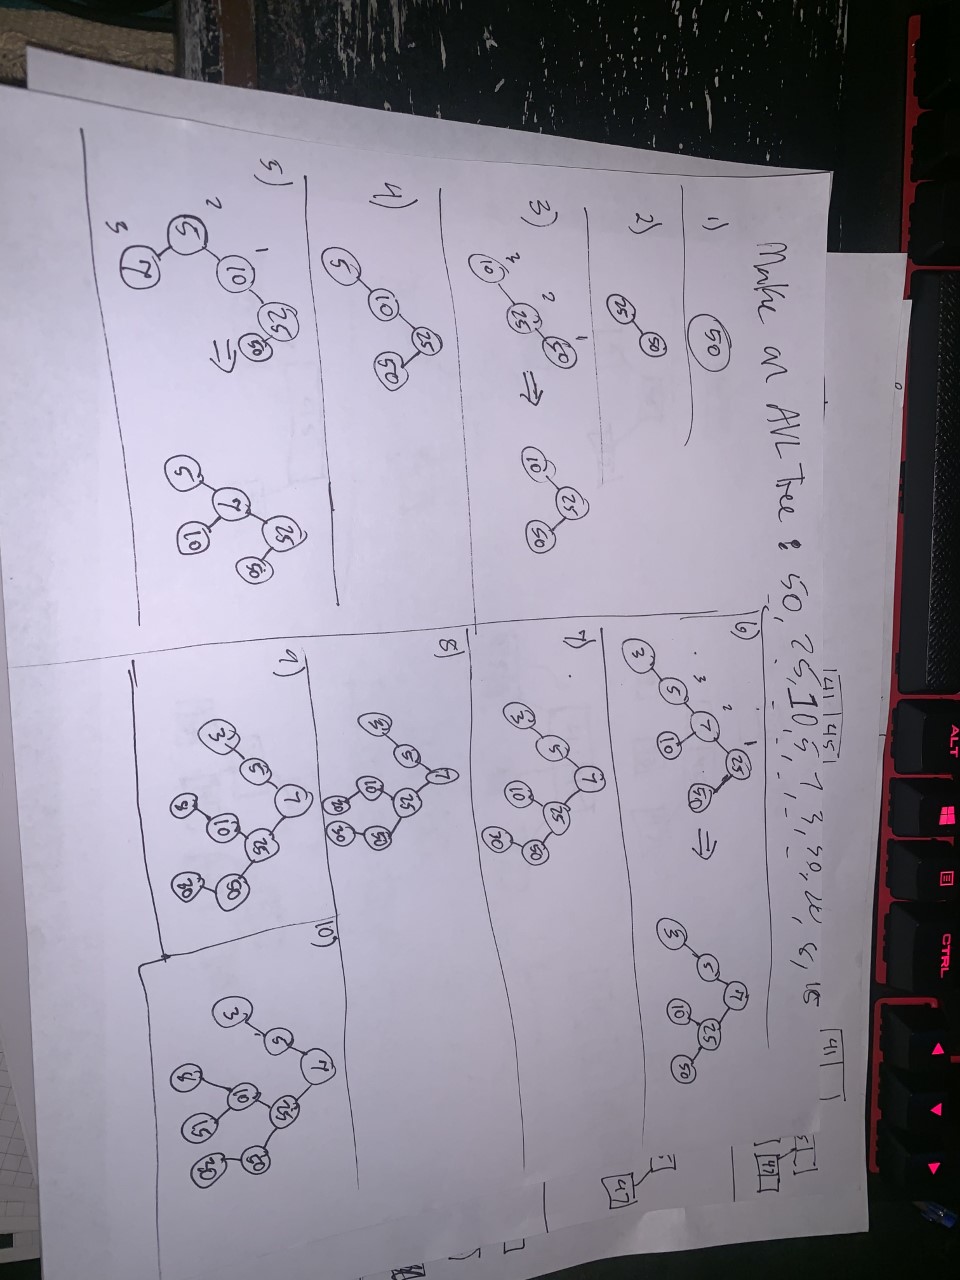 ALT
CTRL
41 45
41
47
Make an AVL Tree: 50, 25, 10, 5, 7, 3, 30, 20, 8, 15
1)
50
2)
50
25
3)
1 50
2 25
3 10
⇒
25
10 50
4)
25
10 50
5
5)
1 25
10 50
2 5
3 7
⇒
25
7 50
5 10
6)
1 25
2 7 50
3 5 10
3
⇒
7
5 25
3 10 50
47
7)
7
5 25
3 10 50
30
8)
7
5 25
3 10 50
20 30
9)
7
5 25
3 10 50
8 30
10)
7
5 25
3 10 50
8 15 30